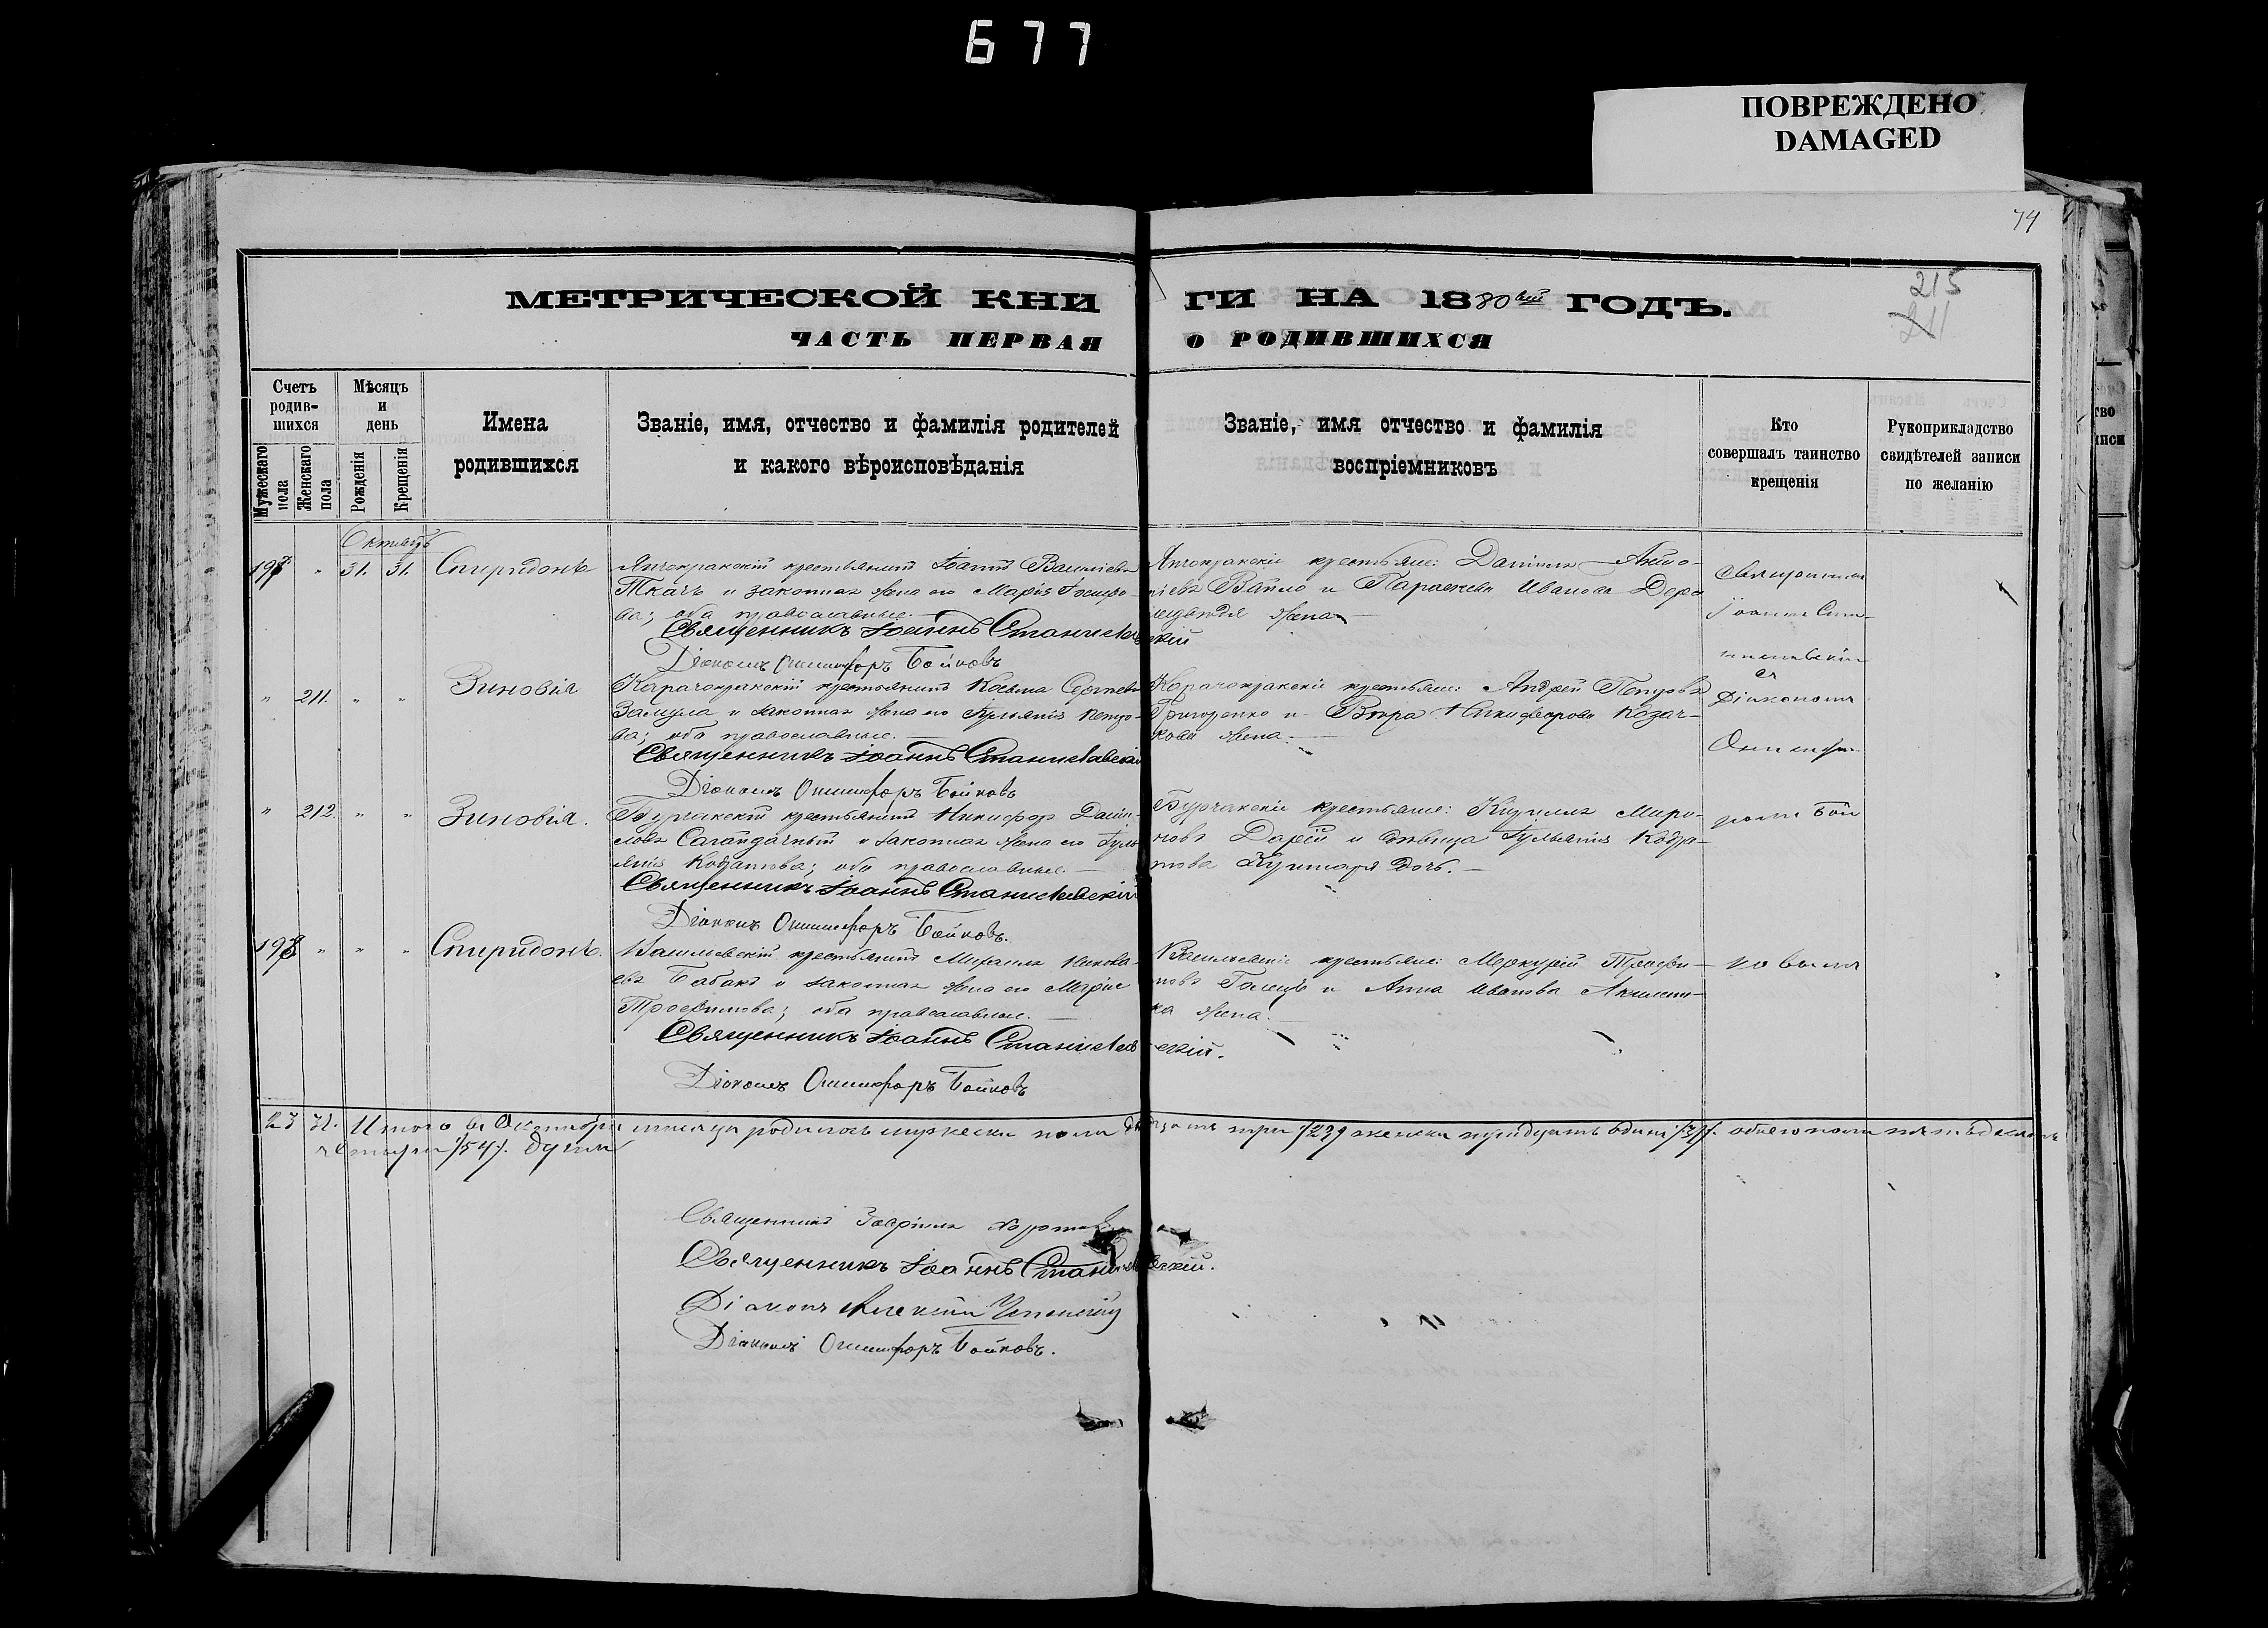 677
ПОВРЕЖДЕНО
DAMAGED
74
215
211
МЕТРИЧЕСКОЙ КНИГИ НА 1880ый ГОДЪ.
ЧАСТЬ ПЕРВАЯ о РОДИВШИХСЯ
Счетъ родившихся
Мужескаго пола
Женскаго пола
Мѣсяцъ и день
Рожденія
Крещенія
Имена родившихся
Званіе, имя, отчество и фамилія родителей
и какого вѣроисповѣданія
Званіе, имя отчество и фамилія
воспріемниковъ
Кто
совершалъ таинство
крещенія
Рукоприкладство
свидѣтелей записи
по желанію
Октябрь
197 " 31. 31. Спиридонъ
крестьянинъ Іоаннъ Васильевъ
Ткачъ и законная жена его Марія
ва; оба православные.
Священникъ Іоаннъ Станиславскій
Діаконъ Онисифоръ Бойковъ
крестьяне: Даніилъ
Вайло и Параскева Иванова
жена
Священникъ
Іоаннъ
" 211. " " Зиновія
Карачокракскій крестьянинъ Косьма Сергѣевъ
Замула и законная жена его Іуліанія Петро-
ва; оба православные.
Священникъ Іоаннъ Станиславскій
Діаконъ Онисифоръ Бойковъ
Карачокракскіе крестьяне: Андрей Петровъ
Григоренко и Вѣра Никифорова Козач-
кова жена.
съ
Діакономъ
" 212. " " Зиновія.
Бурчакскій крестьянинъ Никифоръ Дани-
ловъ Сагайдачный и законная жена его Іуль-
янія Кодратова; оба православные
Священникъ Іоаннъ Станиславскій
Діаконъ Онисифоръ Бойковъ.
Бурчакскіе крестьяне: Кириллъ Миро-
новъ Дарій и дѣвица Іульянія Кодра-
това дочь.
198 " " " Спиридонъ.
Васильевскій крестьянинъ Михаилъ Никола-
евъ Бабакъ и законная жена его Марія
Трофимова; оба православные.
Священникъ Іоаннъ Станиславскій.
Діаконъ Онисифоръ Бойковъ
Васильевскіе крестьяне: Меркурій Трофи-
мовъ и Анна Иванова
ка жена.
ковымъ
23 31. Итого въ Октябрѣ мѣсяцѣ родилось мужеска пола двадцать три /23/ женска тридцать одинъ /31/. обоего пола пятьдесятъ
четыре /54/. души
Священникъ Гавріилъ
Священникъ Іоаннъ Станиславскій.
Діаконъ Алексѣй Успенскій
Діаконъ Онисифоръ Бойковъ.